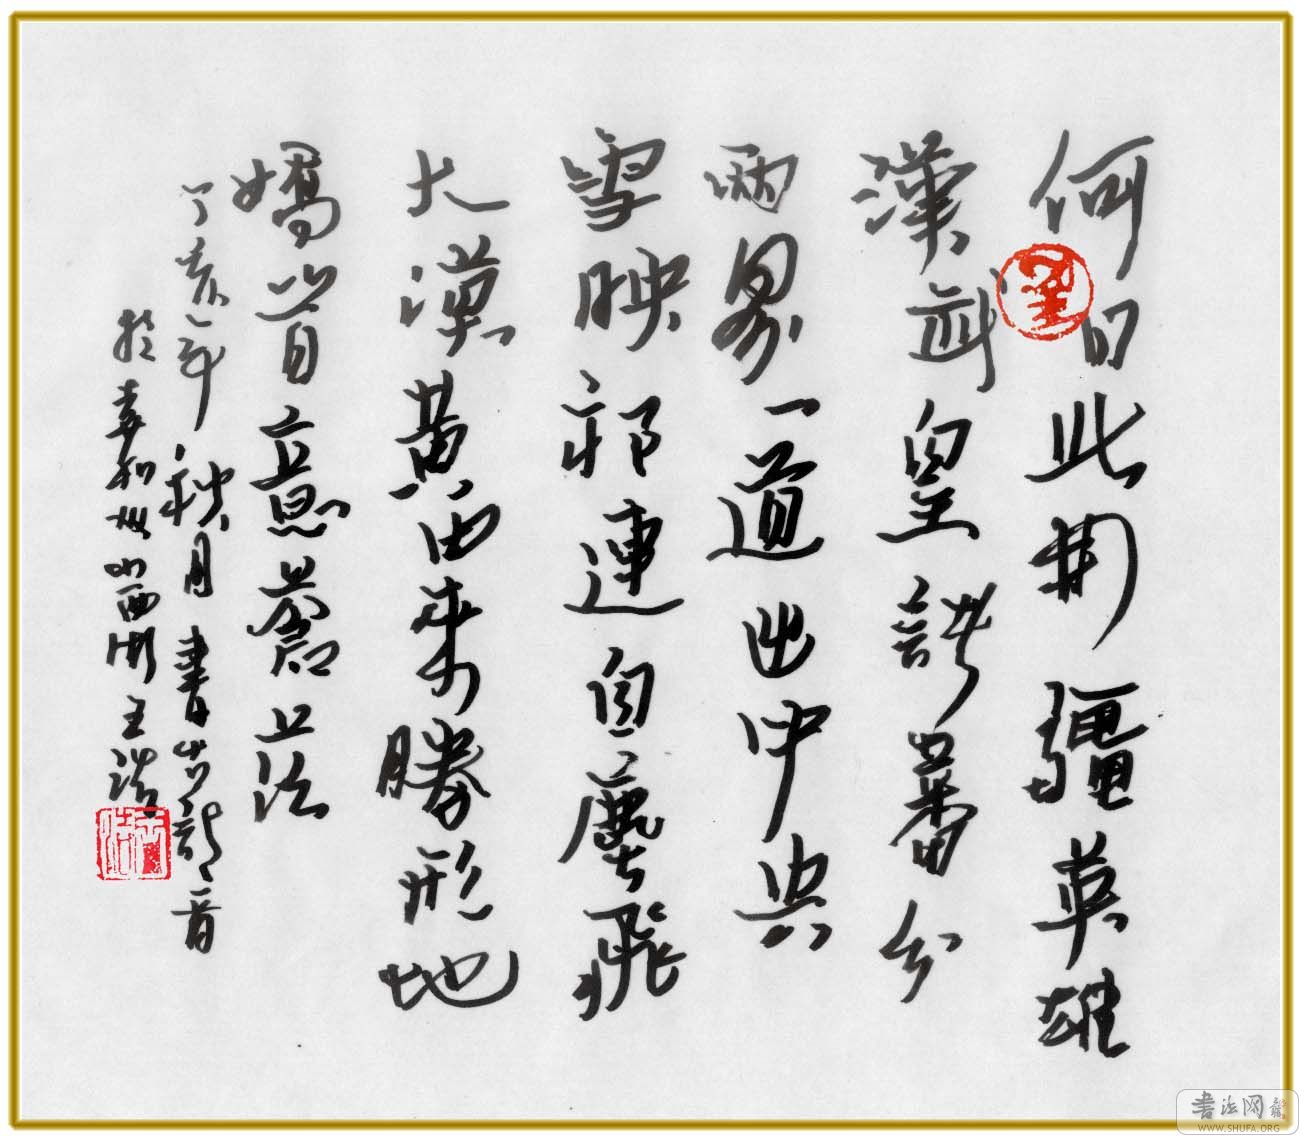 何日此開疆英雄
漢武皇諸蕃分
兩界一道出中央
雪映祁連白塵飛
大漠黃由來勝形地
嬌首意蒼茫
丁亥年秋月書古詩一首
於王浩
書法网
WWW.SHUFA.ORG